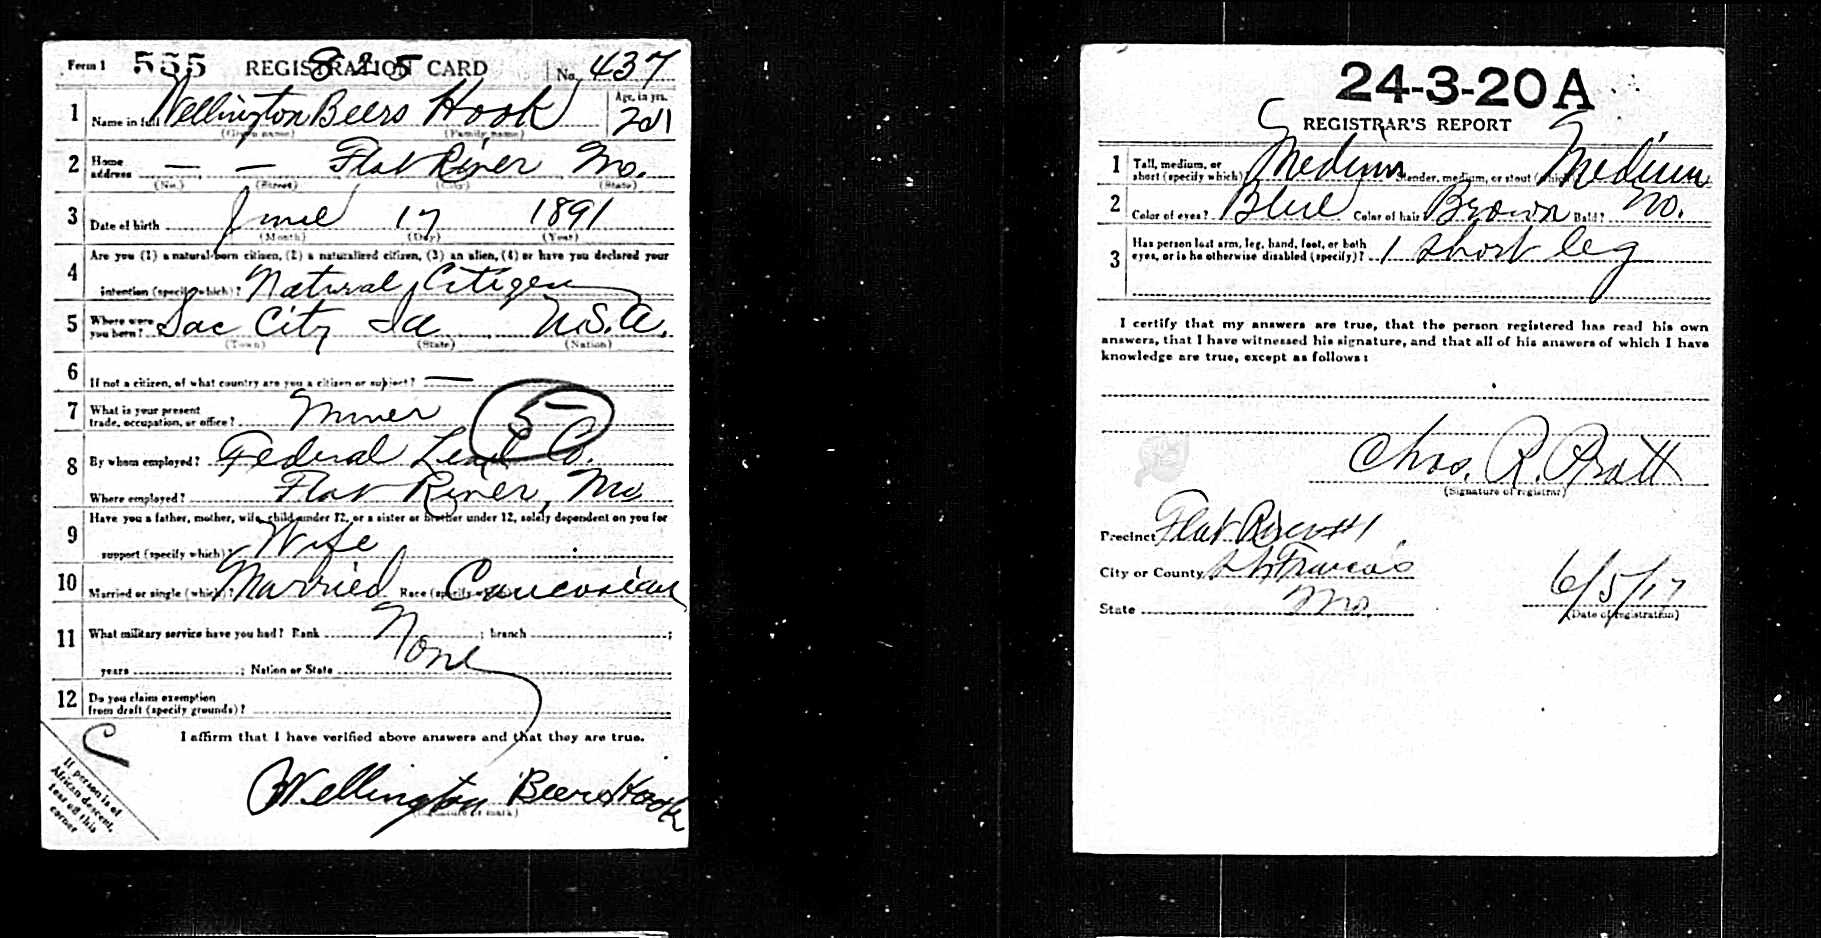 Form 1 555 REGISTRATION CARD 825 No. 437
1 Name in full Wellington Beers Hook Age, in yrs.
(Given name) (Family name)
2 Home address — — Flat River Mo.
(No.) (Street) (City) (State)
3 Date of birth June 17 1891
(Month) (Day) (Year)
4 Are you (1) a natural-born citizen, (2) a naturalized citizen, (3) an alien, (4) or have you declared your
intention (specify which)? Natural Citizen
5 Where were you born? Sac City Ia U.S.A.
(Town) (State) (Nation)
6 If not a citizen, of what country are you a citizen or subject? —
7 What is your present trade, occupation, or office? Miner 5
8 By whom employed? Federal Lead Co.
Where employed? Flat River, Mo
9 Have you a father, mother, wife, child under 12, or a sister or brother under 12, solely dependent on you for
support (specify which)? Wife
10 Married or single (which)? Married Race (specify which)? Caucasian
11 What military service have you had? Rank None ; branch ;
years ; Nation or State
12 Do you claim exemption
from draft (specify grounds)?
I affirm that I have verified above answers and that they are true.
C
If person is of
African descent,
tear off this
corner
Wellington Beers Hook
(Signature or mark)
24-3-20 A
REGISTRAR'S REPORT
1 Tall, medium, or
short (specify which)? Medium Slender, medium, or stout (which)? Medium
2 Color of eyes? Blue Color of hair? Brown Bald? No.
3 Has person lost arm, leg, hand, foot, or both
eyes, or is he otherwise disabled (specify)? 1 short leg
I certify that my answers are true, that the person registered has read his own
answers, that I have witnessed his signature, and that all of his answers of which I have
knowledge are true, except as follows:
Chas. R. Pratt
(Signature of registrar)
Precinct Flat River #1
City or County St Francois
State Mo. 6/5/17
(Date of registration)